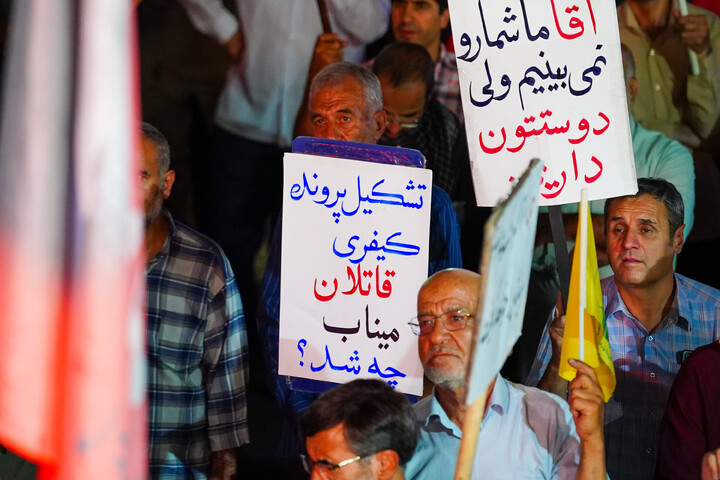 آقا ما شما رو
نمی‌بینیم ولی
دوستتون
داریم
تشکیل پرونده
کیفری
قاتلان
میناب
چه شد؟